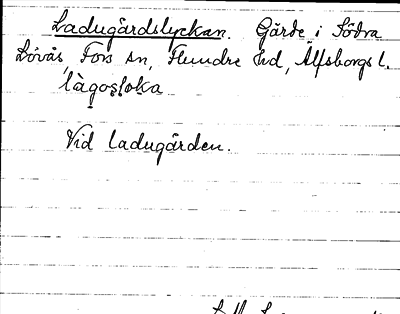 Ladugårdslyckan. Gärde i Södra
Lövås, Fors sn, Flundre hd, Älfsborgs l.
Vid ladugården.